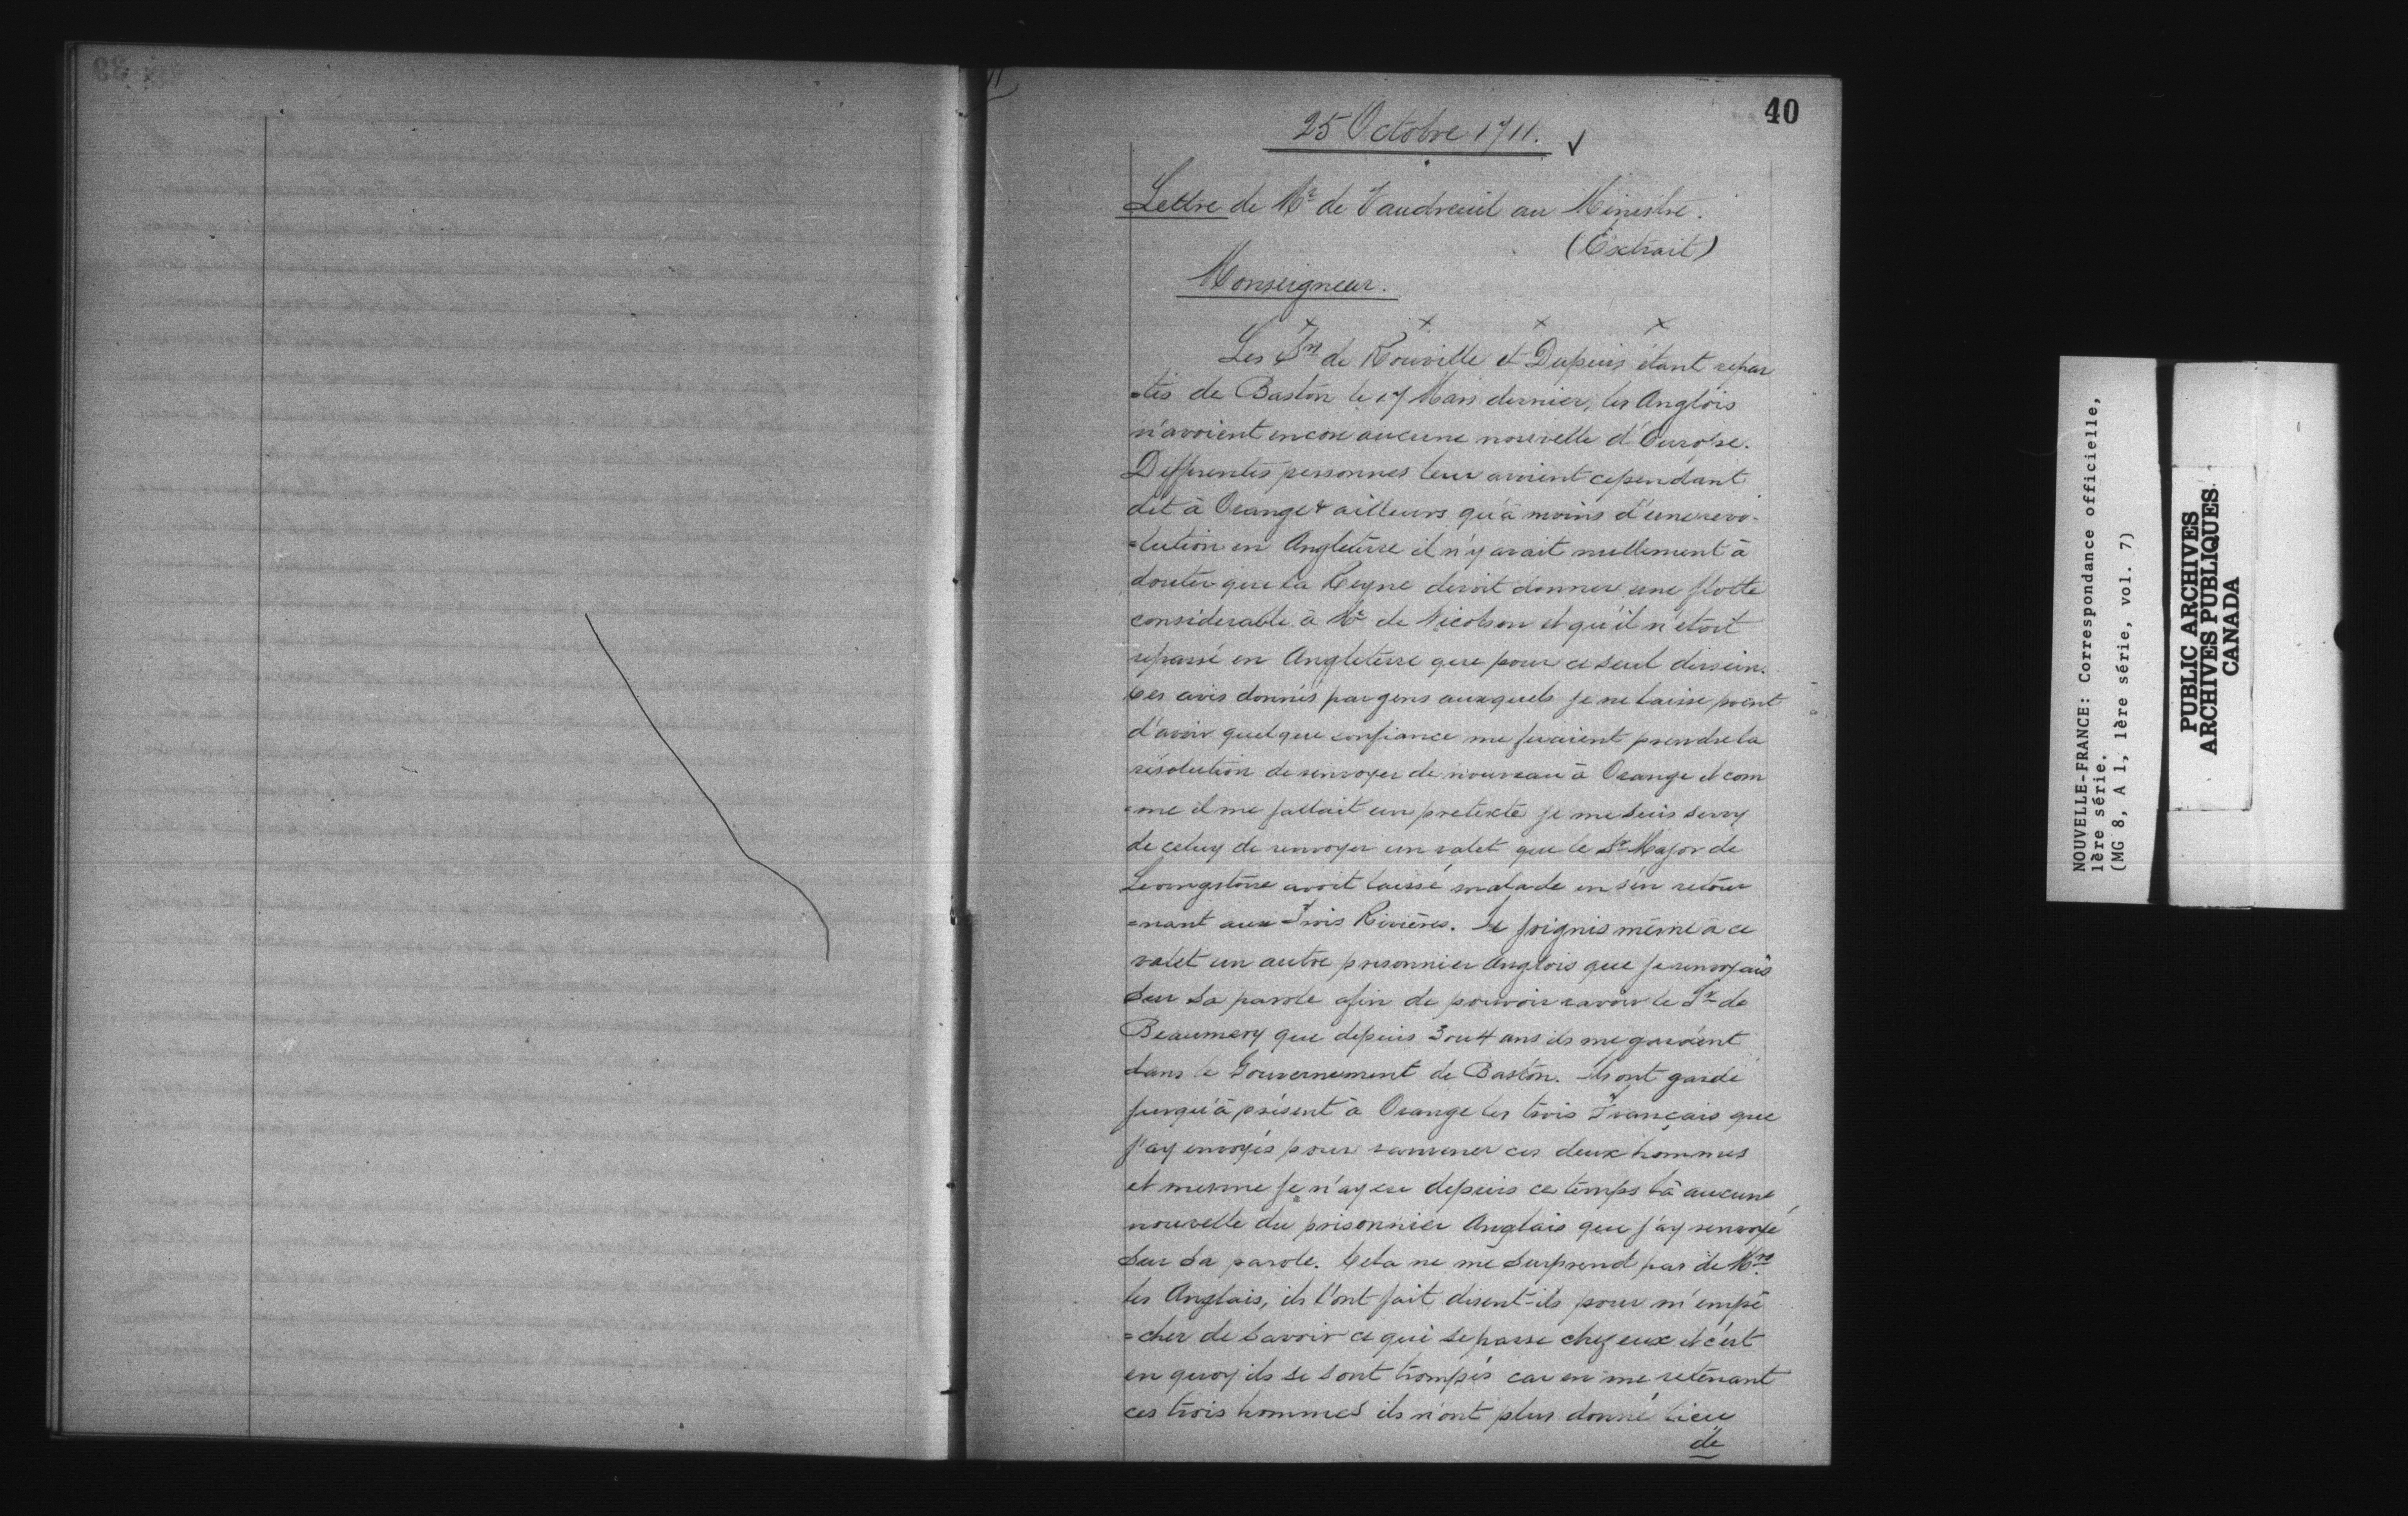 40
25 Octobre 1711.
Lettre de Mr de Vaudreuil au Ministre.
(Extrait)
Monseigneur.
Les Srs de Rouville et Dupuis étant repar
=tis de Baston le 17 Mars dernier, les Anglois
n'avoient encore aucune nouvelle d'Europe.
Differentes personnes leur avoient cependant
dit à Orange & ailleurs qu'à moins d'une revo-
=lution en Angleterre il n'y avait nullement à
douter que la Reyne devoit donner une flotte
considerable à Mr de Nicolson et qu'il n'etoit
repassé en Angleterre que pour ce seul dessein.
Ces avis donnés par gens auxquels je ne laisse point
d'avoir quelque confiance me feraient prendre la
résolution de renvoyer de nouveau à Orange et com
=me il me fallait un pretexte je me suis servy
de celuy de renvoyer un valet que le Sr Major de
Levingstone avoit laissé malade en s'en retour
=nant aux Trois Rivières. Je joignis même à ce
valet un autre prisonnier Anglois que je renvoyais
sur sa parole afin de pouvoir ravoir le Sr de
Beaumery que depuis 3 ou 4 ans ils me gardent
dans le Gouvernement de Baston. Ils ont gardé
jusqu'à présent à Orange les trois Français que
j'ay envoyés pour ramener ces deux hommes
et mesme je n'ay eu depuis ce temps là aucune
nouvelle du prisonnier Anglais que j'ay renvoyé
sur sa parole. Cela ne me surprend pas de Mrs
les Anglais, ils l'ont fait disent-ils pour m'empê
=cher de savoir ce qui se passe chez eux et c'est
en quoy ils se sont trompés car en me retenant
ces trois hommes ils m'ont plus donné lieu
de
NOUVELLE-FRANCE: Correspondance officielle,
1ère série.
(MG 8, A 1, 1ère série, vol. 7)
PUBLIC ARCHIVES
ARCHIVES PUBLIQUES
CANADA